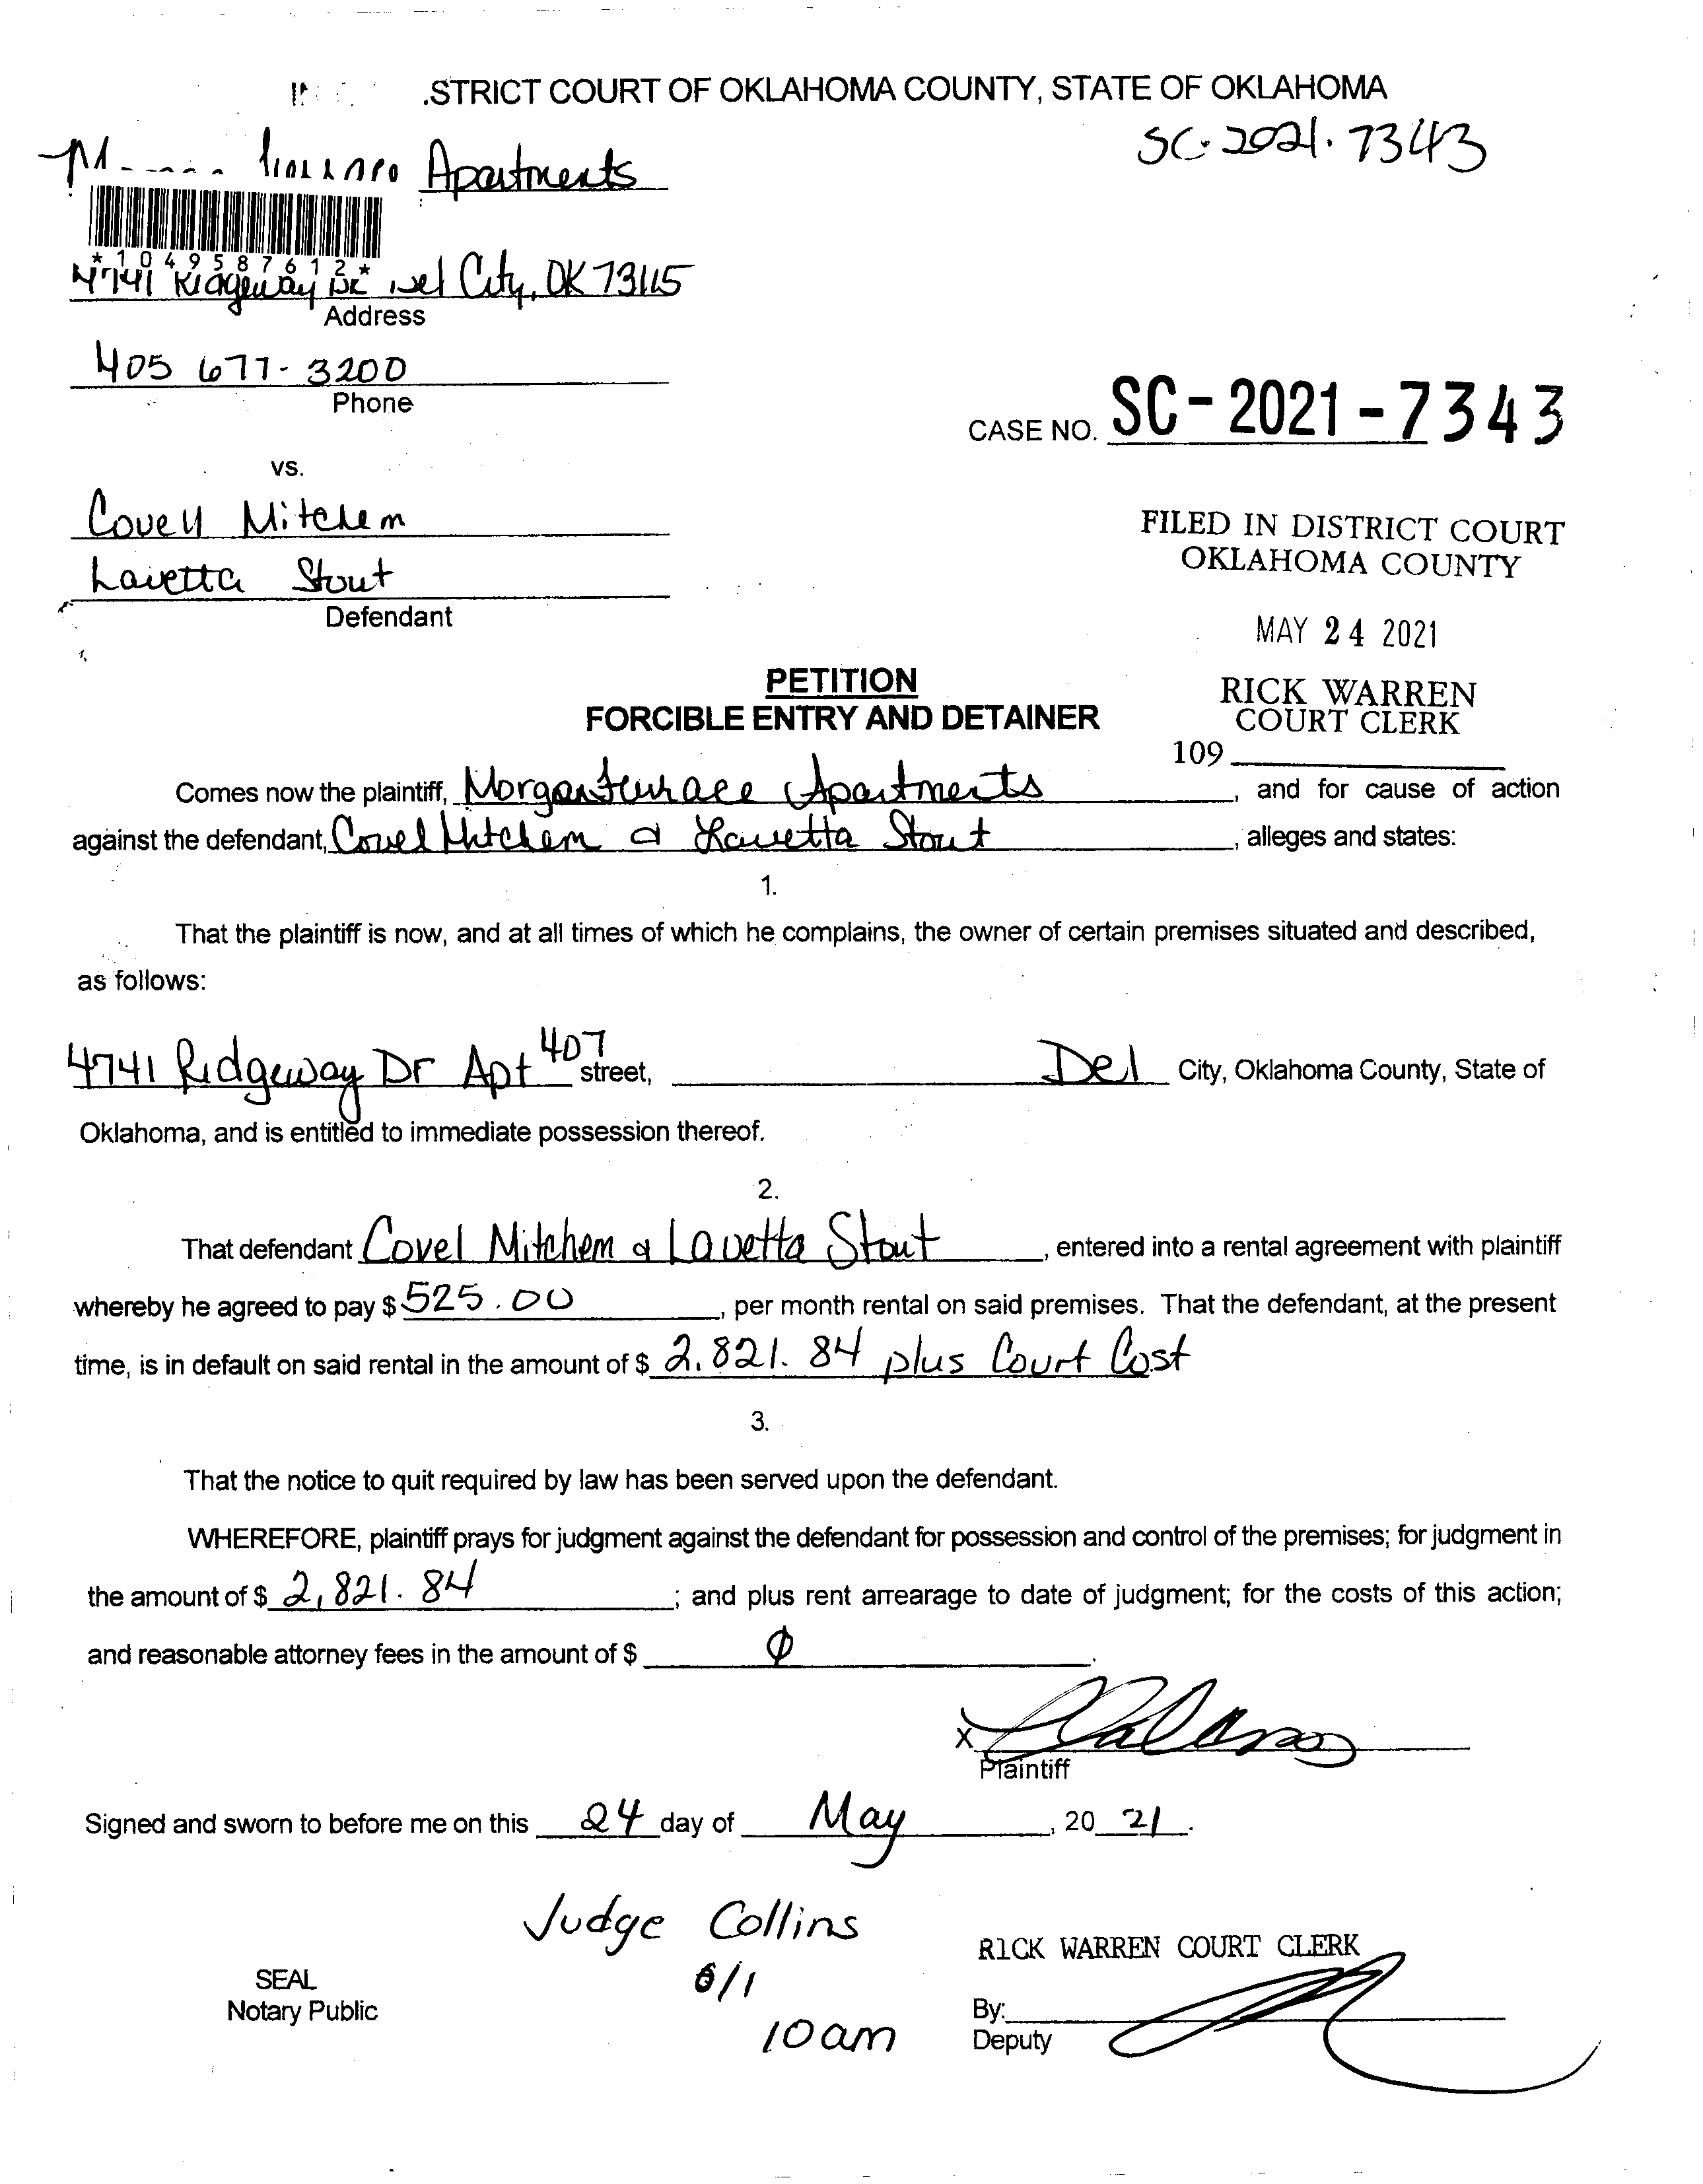 .STRICT COURT OF OKLAHOMA COUNTY, STATE OF OKLAHOMA
SC-2021-7343
Apartments
*1049587612*
4741 Ridgeway Dr Del City, OK 73115
Address
405 677-3200
Phone
CASE NO. SC-2021-7343
vs.
Covell Mitchem
Lavetta Stout
Defendant
FILED IN DISTRICT COURT
OKLAHOMA COUNTY
MAY 24 2021
RICK WARREN
COURT CLERK
109
PETITION
FORCIBLE ENTRY AND DETAINER
Comes now the plaintiff, Morgan Terrace Apartments, and for cause of action
against the defendant, Covel Mitchem & Lavetta Stout, alleges and states:
1.
That the plaintiff is now, and at all times of which he complains, the owner of certain premises situated and described,
as follows:
4741 Ridgeway Dr Apt 407 street, Del City, Oklahoma County, State of
Oklahoma, and is entitled to immediate possession thereof.
2.
That defendant Covel Mitchem & Lavetta Stout, entered into a rental agreement with plaintiff
whereby he agreed to pay $ 525.00, per month rental on said premises. That the defendant, at the present
time, is in default on said rental in the amount of $ 2.821.84 plus Court Cost
3.
That the notice to quit required by law has been served upon the defendant.
WHEREFORE, plaintiff prays for judgment against the defendant for possession and control of the premises; for judgment in
the amount of $ 2,821.84; and plus rent arrearage to date of judgment; for the costs of this action;
and reasonable attorney fees in the amount of $ Ø.
X
Plaintiff
Signed and sworn to before me on this 24 day of May, 20 21.
Judge Collins
6/1
10am
SEAL
Notary Public
RICK WARREN COURT CLERK
By:
Deputy